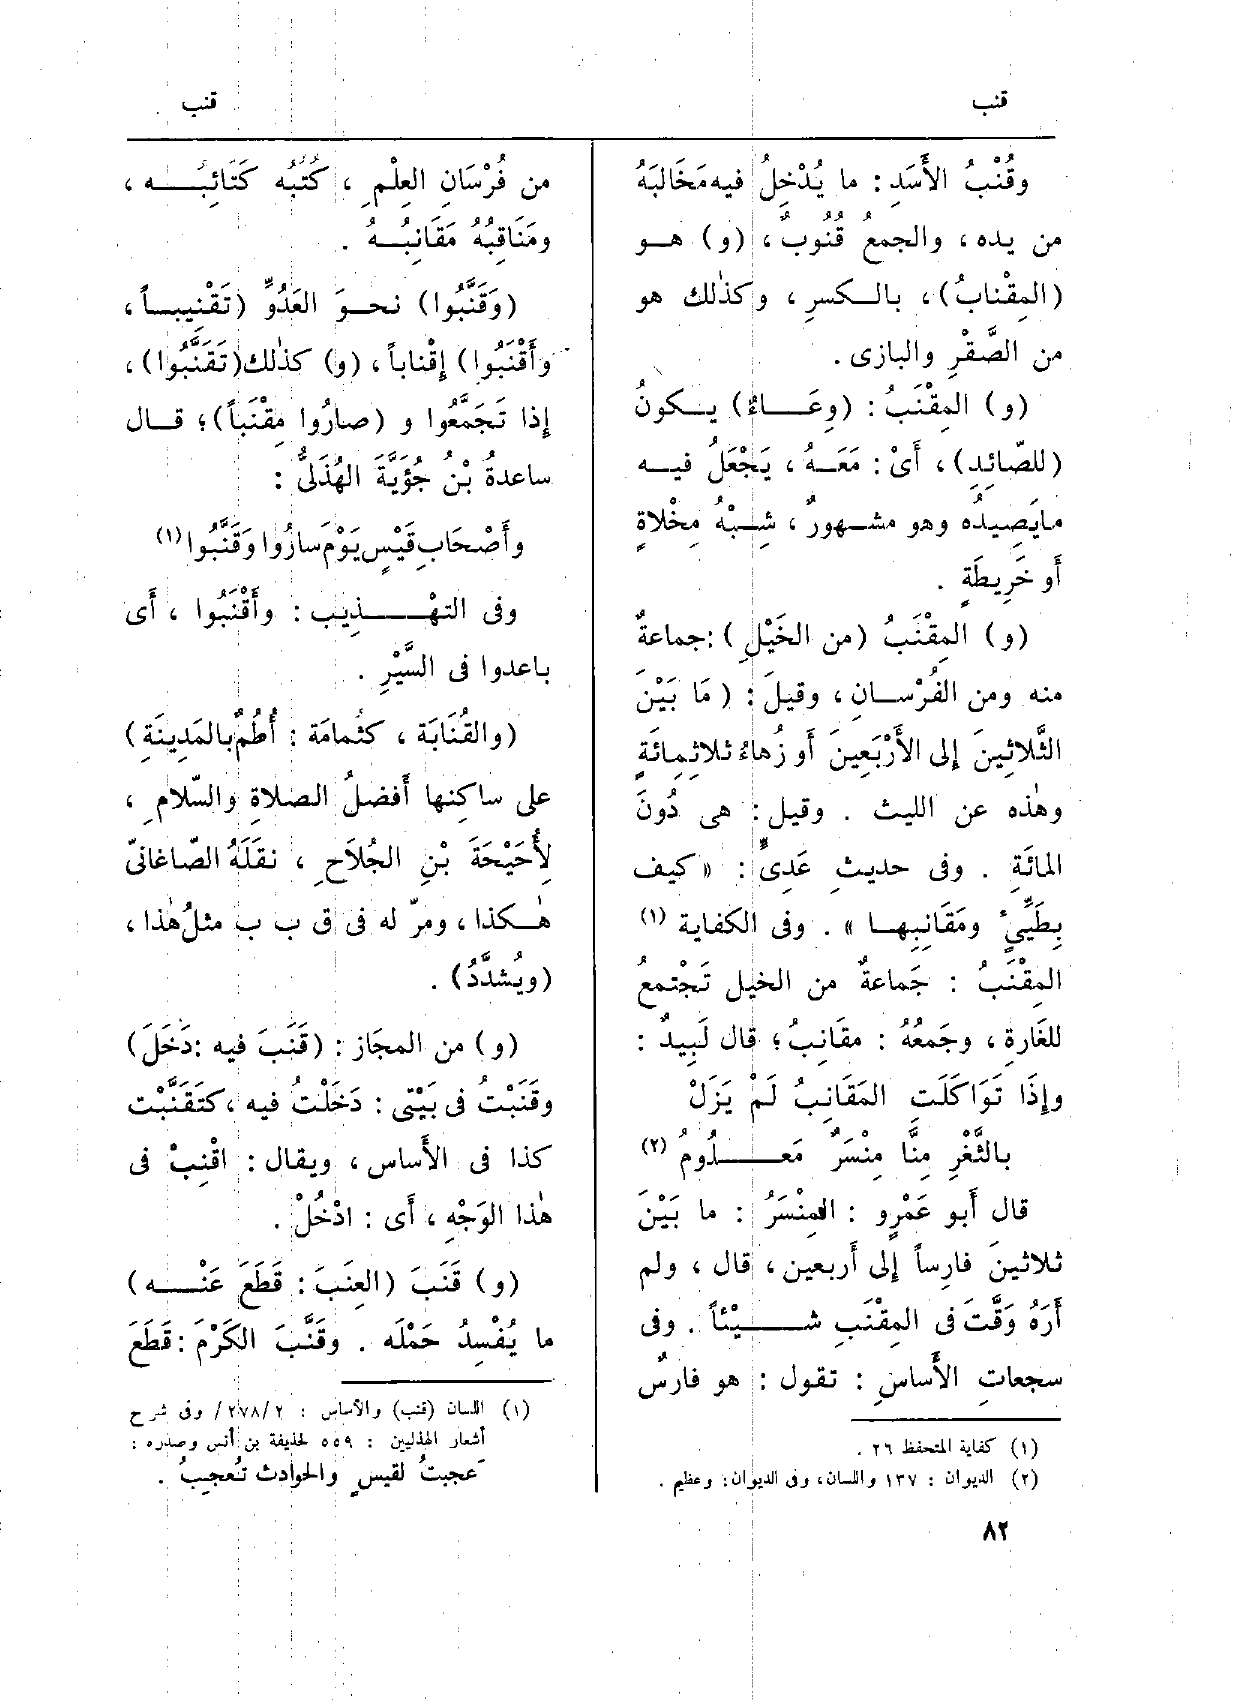 قنب
قنب
وقُنْبُ الأَسَدِ : ما يُدْخِلُ فيه مَخَالبَهُ
من يده، والجمعُ قُنُوبٌ، (و) هـو
(المِقْنابُ)، بالـكسرِ، وكذٰلك هو
من الصَّقْرِ والبازى.
(و) المِقْنَبُ : (وِعَـاءٌ) يـكونُ
(للصّائِدِ)، أَىْ : مَعَـهُ، يَجْعَلُ فيـه
مايَصِيدُه وهو مشهورٌ، شِبْهُ مِخْلاةٍ
أَو خَرِيطَةٍ .
(و) المِقْنَبُ (من الخَيْلِ) : جماعةٌ
منه ومن الفُرْسـانِ، وقيلَ : (مَا بَيْنَ
الثَّلاثِينَ إِلى الأَرْبَعِينَ أَو زُهاءُ ثلاثِمائَةٍ
وهٰذه عن الليث . وقيل : هى دُونَ
المائَةِ . وفى حديثِ عَدِىٍّ : « كيف
بِطَيِّىءٍ ومَقَانِبِهـا » . وفى الكفاية (١)
المِقْنَبُ : جَماعةٌ من الخيل تَجْتمعُ
للغَارةِ، وجَمعُهُ : مقَانِبُ؛ قال لَبِيدٌ :
وإِذَا تَوَاكَلَتِ المَقَانِبُ لَمْ يَزَلْ
بالثَّغْرِ مِنَّا مِنْسَرٌ مَعـلُومُ (٢)
قال أَبو عَمْرٍو : المِنْسَرُ : ما بَيْنَ
ثلاثينَ فارِساً إِلى أَربعين، قال، ولم
أَرَهُ وَقَّتَ فى المِقْنَبِ شـيْئاً . وفى
سجعاتِ الأَساسِ : تقول : هو فارسٌ
(١) كفاية المتحفظ ٢٦ .
(٢) الديوان : ١٣٧ واللسان، وفى الديوان : وعظيم .
٨٢
من فُرْسَانِ العِلْمِ، كُتُبُه كَتَائبُـه،
ومَنَاقِبُهُ مَقَانِبُـهُ .
(وَقَنَّبُوا) نحـوَ العَدُوِّ (تَقْنِيبـاً،
وأَقْنَبُوا) إِقْناباً، (و) كذٰلك (تَقَنَّبُوا)،
إِذا تَجَمَّعُوا و (صارُوا مِقْنَباً)؛ قـال
ساعدةُ بْنُ جُؤَيَّةَ الهُذَلىُّ :
وأَصْحَابِ قَيْسٍ يَوْمَ سارُوا وَقَنَّبُوا (١)
وفى التهْـذِيبِ : وأَقْنَبُوا، أَى
باعدوا فى السَّيْرِ .
(والقُنَابَة، كثُمامَة : أُطُمٌ بالمَدِينَةِ)
على ساكنها أَفضلُ الصلاةِ والسّلامِ،
لِأُحَيْحَةَ بْنِ الجُلاَحِ، نقَلَهُ الصّاغانىّ
هٰـكذا، ومرّ له فى ق ب ب مثلُ هٰذا،
(ويُشدَّدُ) .
(و) من المجَاز : (قَنَبَ فيه : دَخَلَ)
وقَنَبْتُ فى بَيْتِى : دَخَلْتُ فيه، كتَقَنَّبْت
كذا فى الأَساس، ويقال : اقْنِبْ فى
هٰذا الوَجْهِ، أَى : ادْخُلْ .
(و) قَنَبَ (العِنَبَ : قَطَعَ عَنْـه)
ما يُفْسِدُ حَمْلَه . وقَنَّبَ الكَرْمَ : قَطَعَ
(١) اللسان (قنب) والأساس : ٢/٢٧٨/ وفى شرح
أشعار الهذليين : ٥٥٩ لحذيفة بن أنس وصدره :
عجبتُ لقيسٍ والحوادثُ تُعجِبُ .